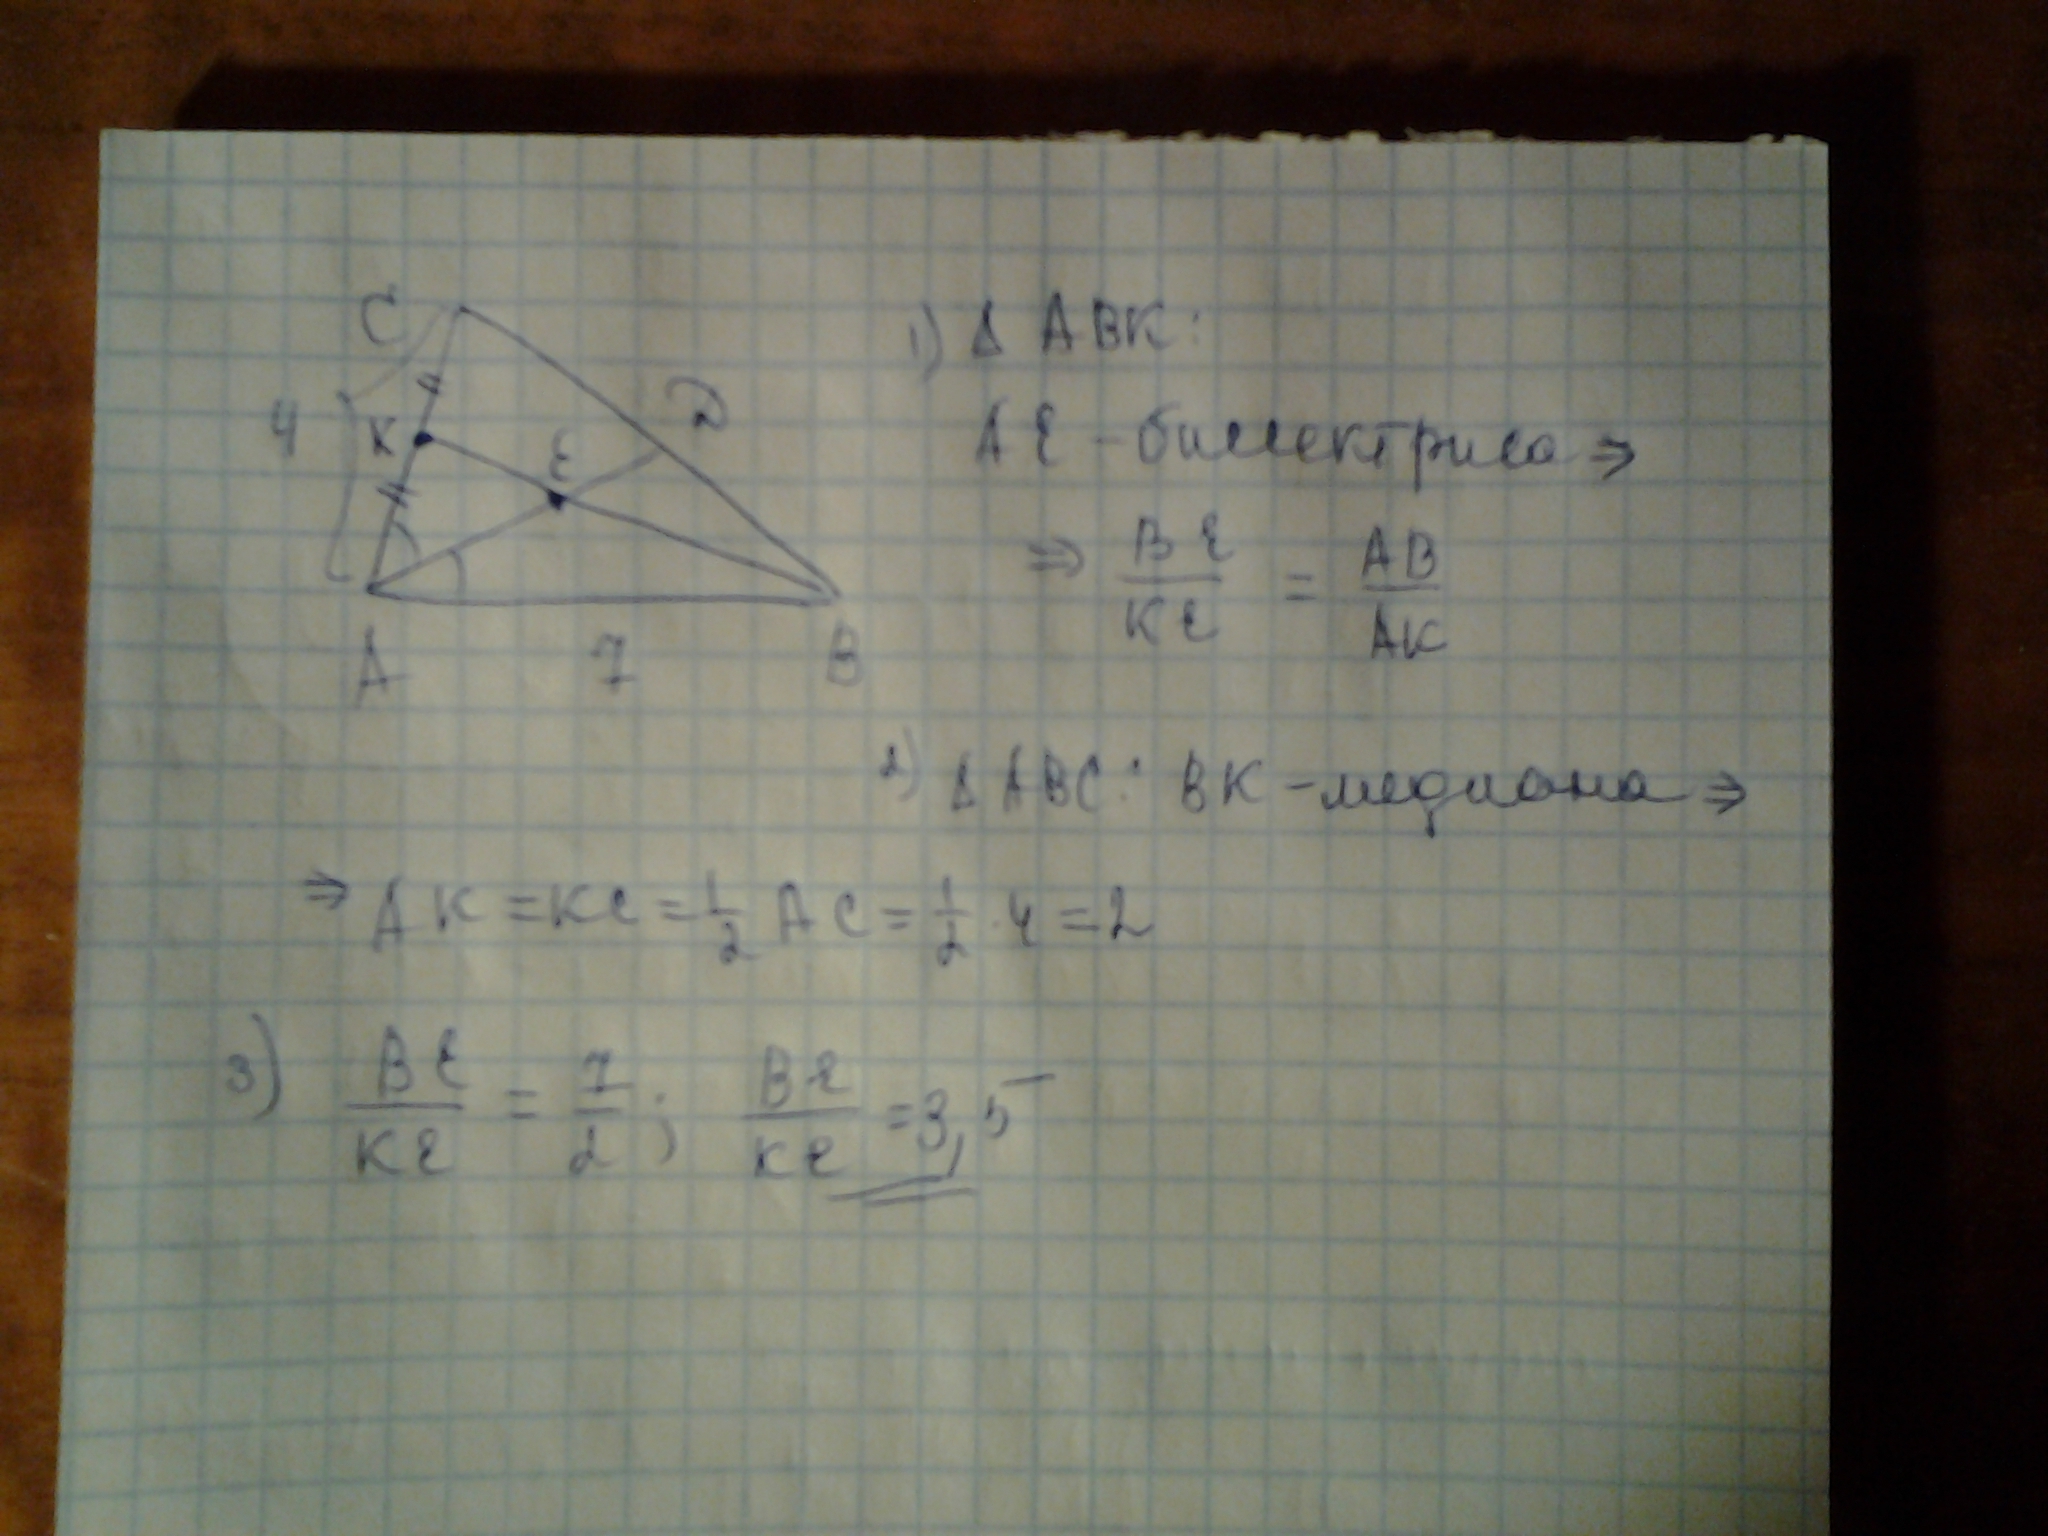 C
D
4
K
E
A
7
B
1) Δ ABK:
AE - биссектриса ⇒
⇒ BE/KE = AB/AK
2) Δ ABC: BK - медиана ⇒
⇒ AK = KC = 1/2 AC = 1/2 · 4 = 2
3) BE/KE = 7/2; BE/KE = 3,5